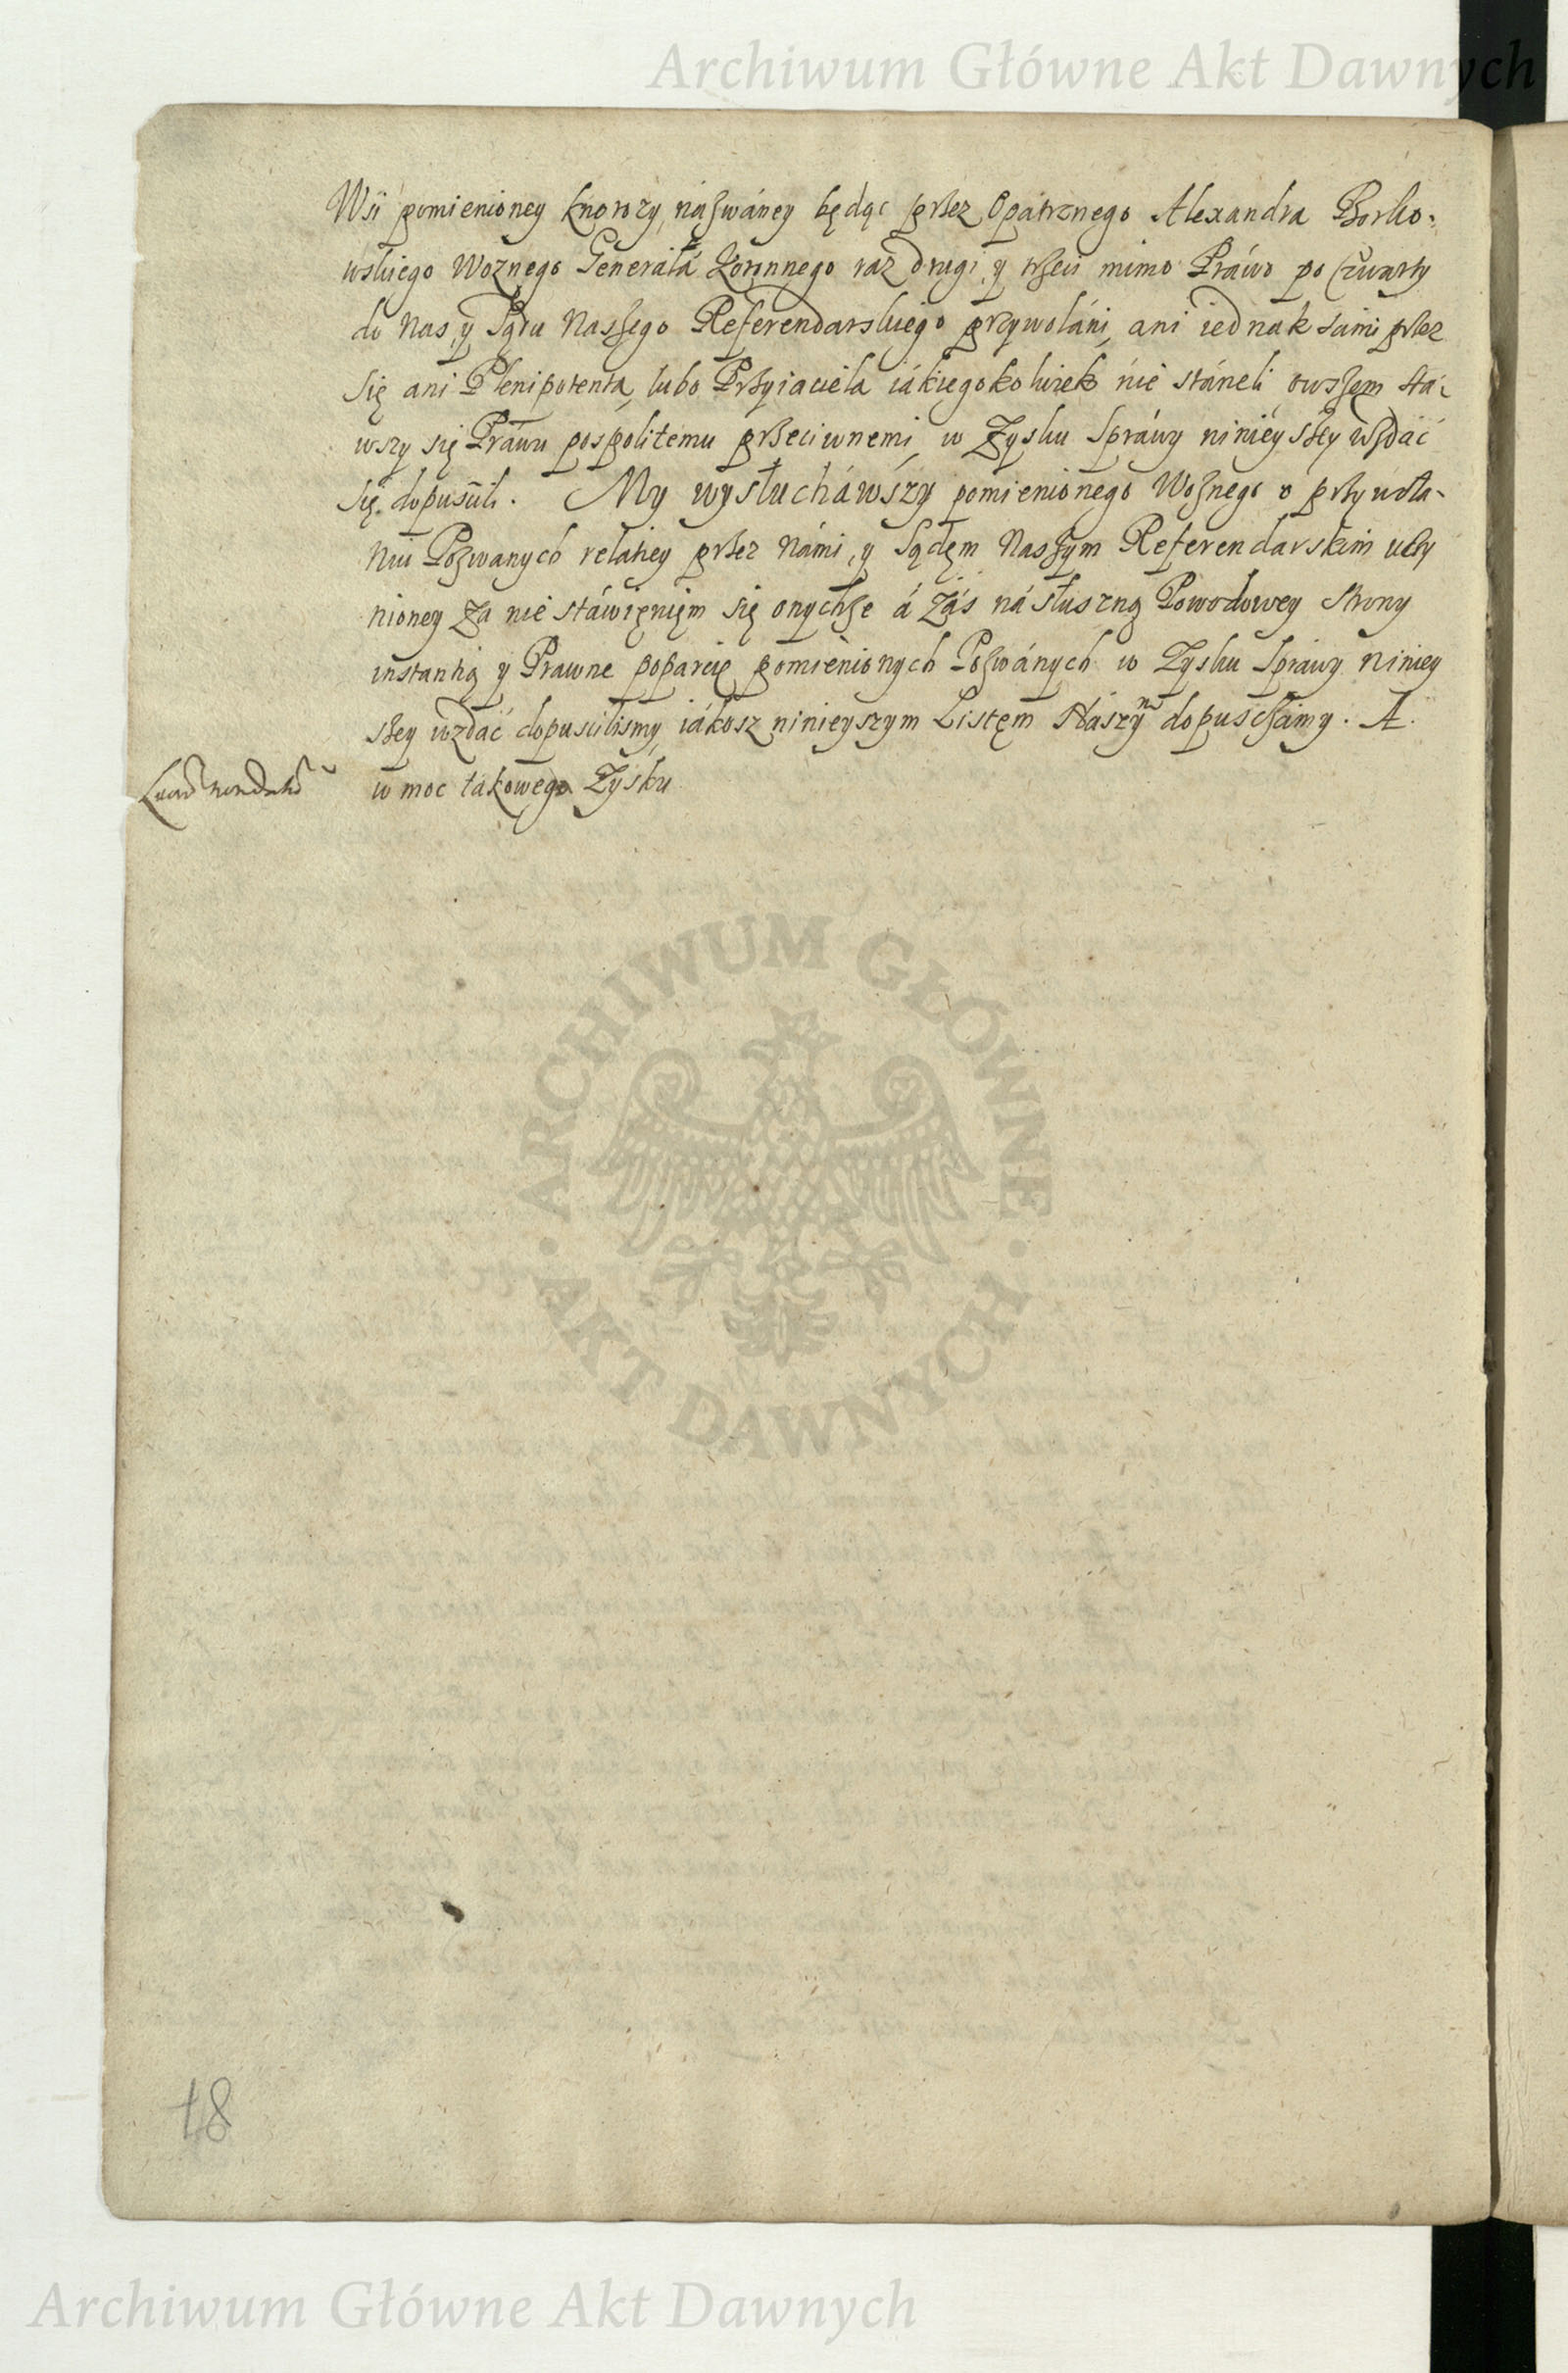 Archiwum Główne Akt Dawnych
Wsi pomienioney Knorozy, názwáney będąc przez Opátrznego Alexandra Borko-
wskiego Woznego Generałá Koronnego raz drugi, y trzeci mimo Práwo po czwarty
do Nas, y Sądu Naszego Referendarskiego przywołáni, ani iednak sami przez
się ani Plenipotenta, lubo Przyiaciela iákiegokolwiek nie stáneli, owszem sta-
wszy się Práwu pospolitemu przeciwnemi, w Zysku Spráwy ninieyszey wzdać
się dopuścili. My wysłucháwszy pomienionego Woznego o przywoła-
niu Pozwanych relatiey przez Námi, y Sądęm Naszym Referendarskim uczy
nioney za nie stáwięnięm się onychże á záś ná słuszną Powodowey Strony
instantią y Prawne poparcie pomienionych Pozwánych w Zysku Sprawy niniey
szey wzdać dopuscilismy, iákosz ninieyszym Listęm Nászym dopuszczamy. A
w moc takowego Zysku
18
ARCHIWUM GŁÓWNE
· AKT DAWNYCH ·
Archiwum Główne Akt Dawnych